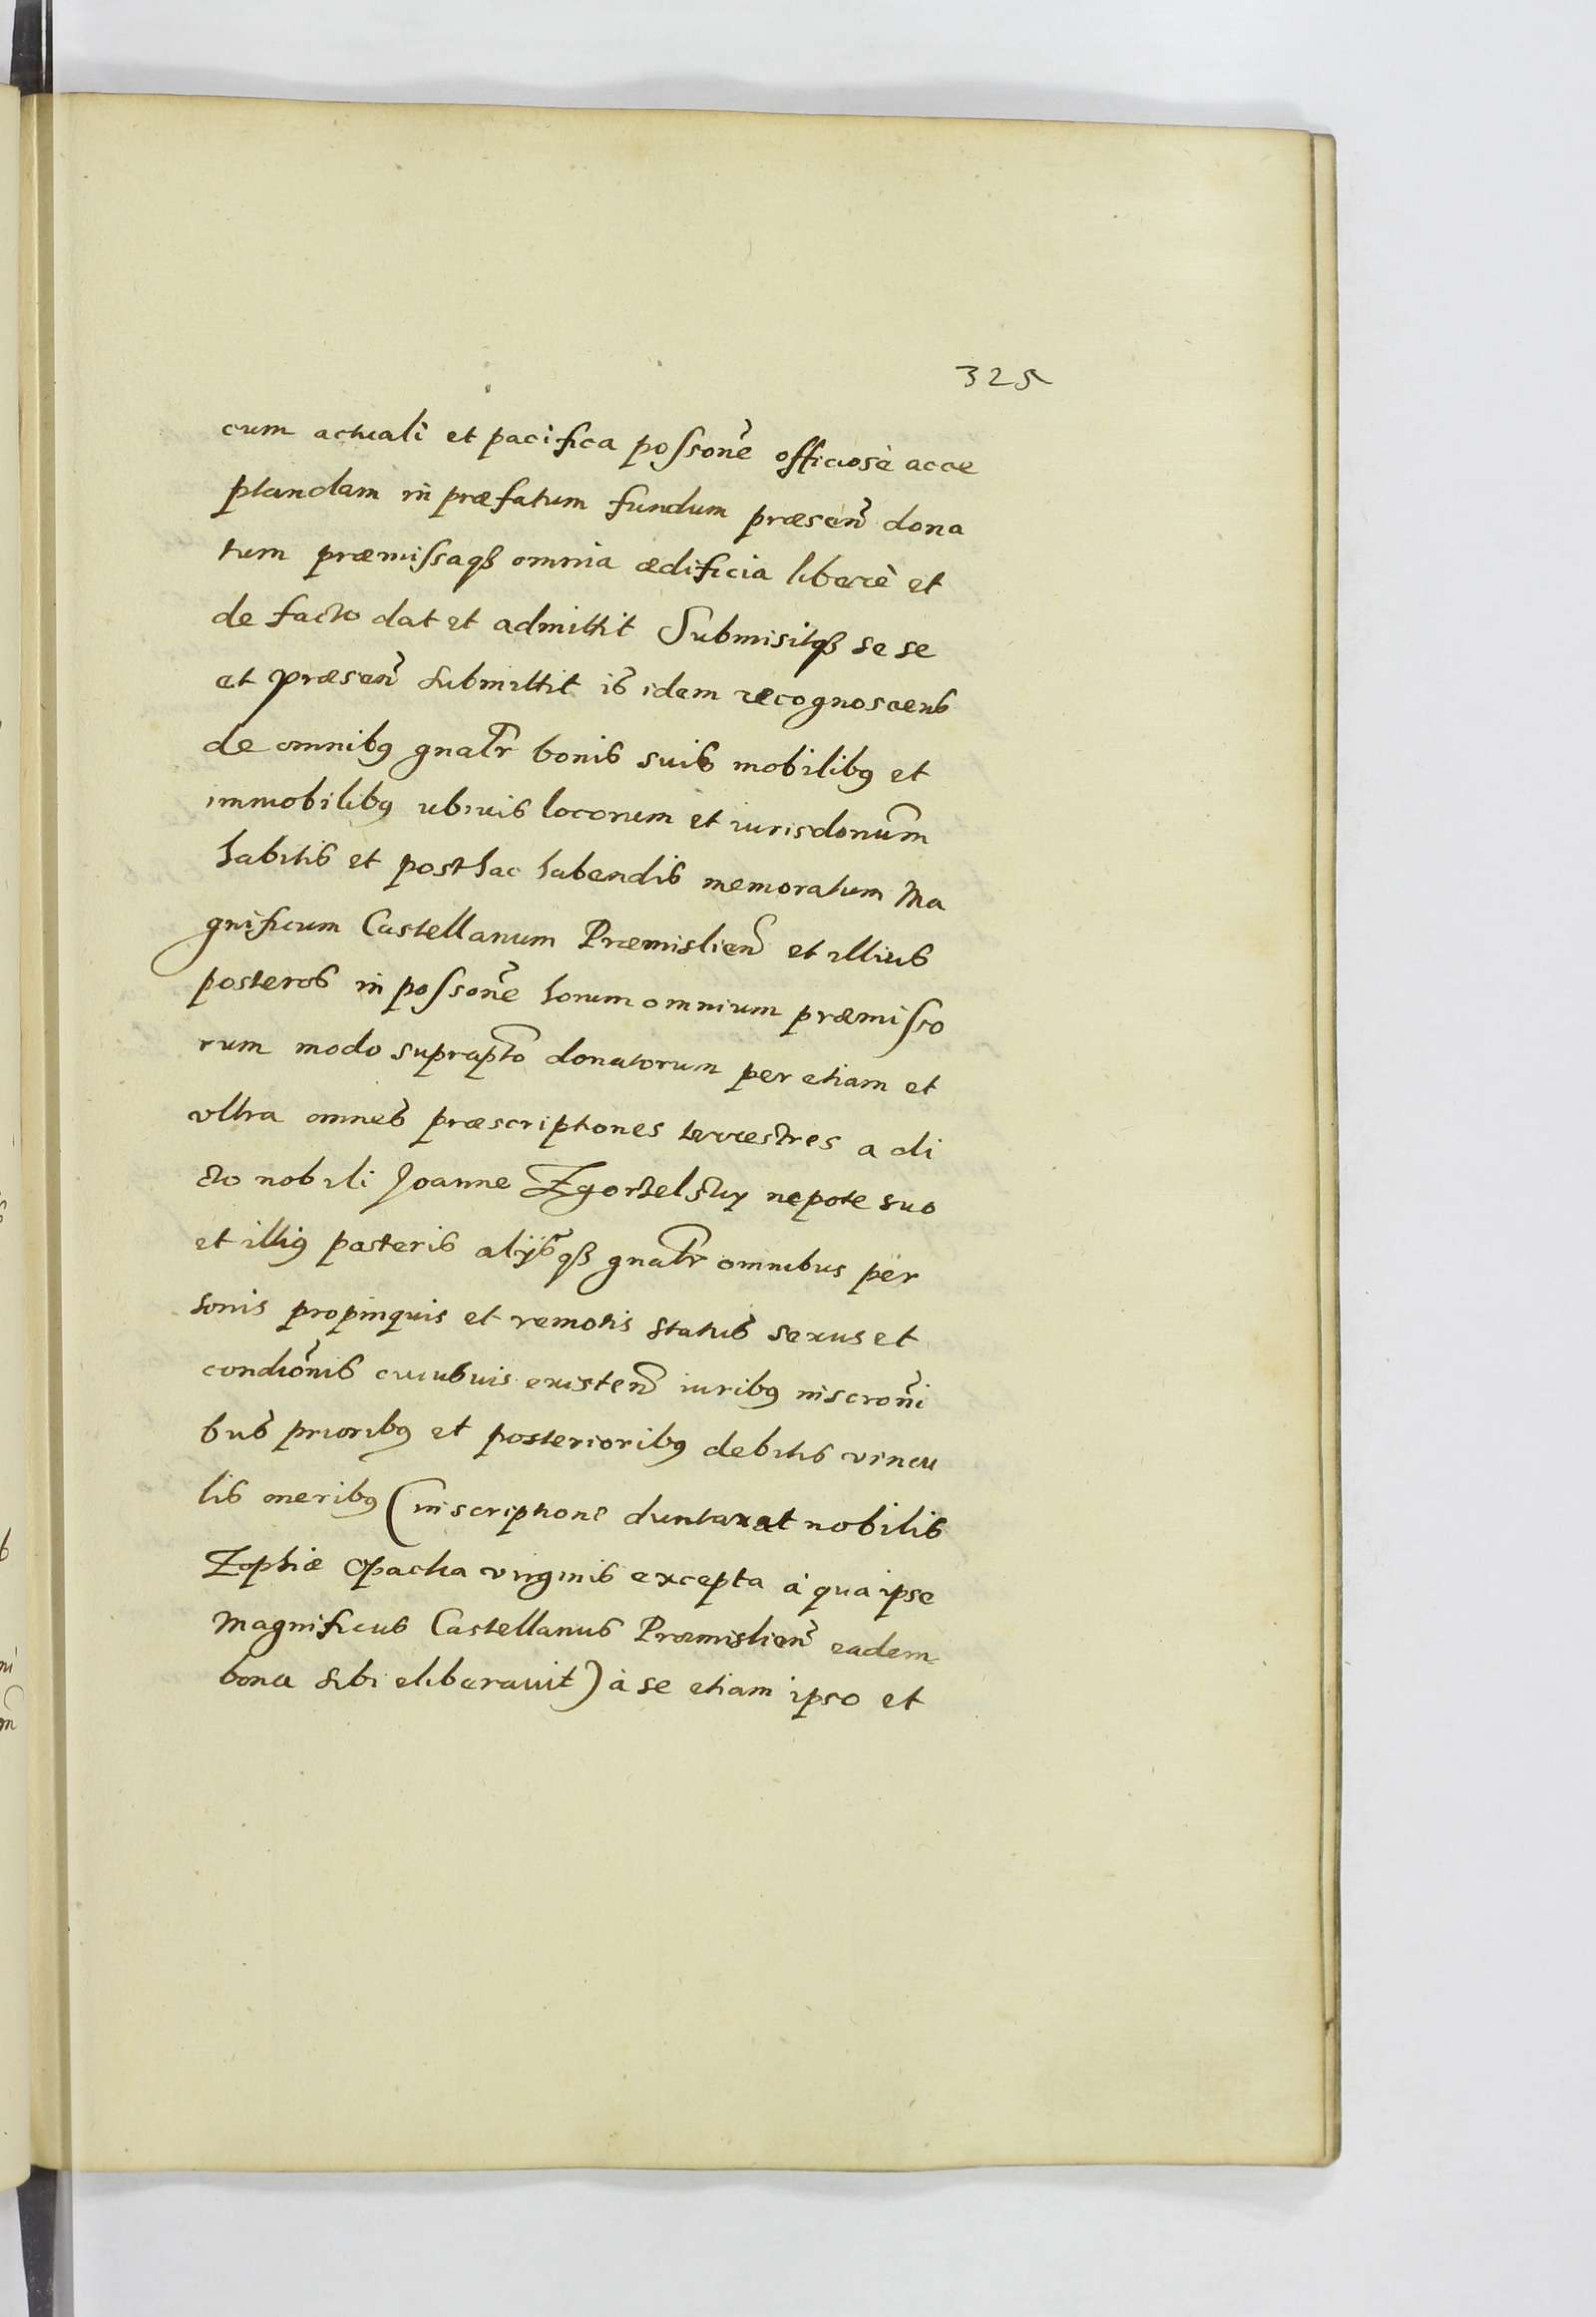 325
cum actuali et pacifica possone officiosè acce
ptandam in præfatum fundum præsen dona
tum præmissaqȝ omnia ædificia liberè et
de facto dat et admittit Submisitqȝ se se
et præsen submittit is idem recognoscens
de omnibȝ gnalr bonis suis mobilibȝ et
immobilibȝ ubivis locorum et iurisdonum
habitis et posthac habendis memoratum Ma
gnificum Castellanum Præmislien et illius
posteros in possone horum omnium præmisso
rum modo suprapto donatorum per etiam et
vltra omnes præscriptiones terrestres a di
cto nobili Joanne Zgorzelsky nepote suo
et illiȝ posteris alijsqȝ gnalr omnibus per
sonis propinquis et remotis status sexus et
condionis cuiusuis existen iuribȝ inscroni
bus prioribȝ et posterioribȝ debitis vincu
lis oneribȝ (inscriptione duntaxat nobilis
Zophiæ Opacka virginis excepta à qua ipse
Magnificus Castellanus Præmislien eadem
bona sibi eliberavit) à se etiam ipso et